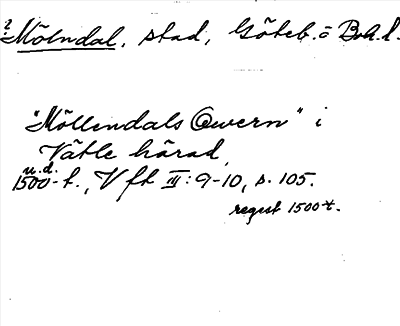 ?
Mölndal, stad, Göteb. o Boh. l.
"Möllendals Qwern" i
Vätle härad,
u.d.
1500-t., Vft III: 9-10, s. 105.
regest 1500t.